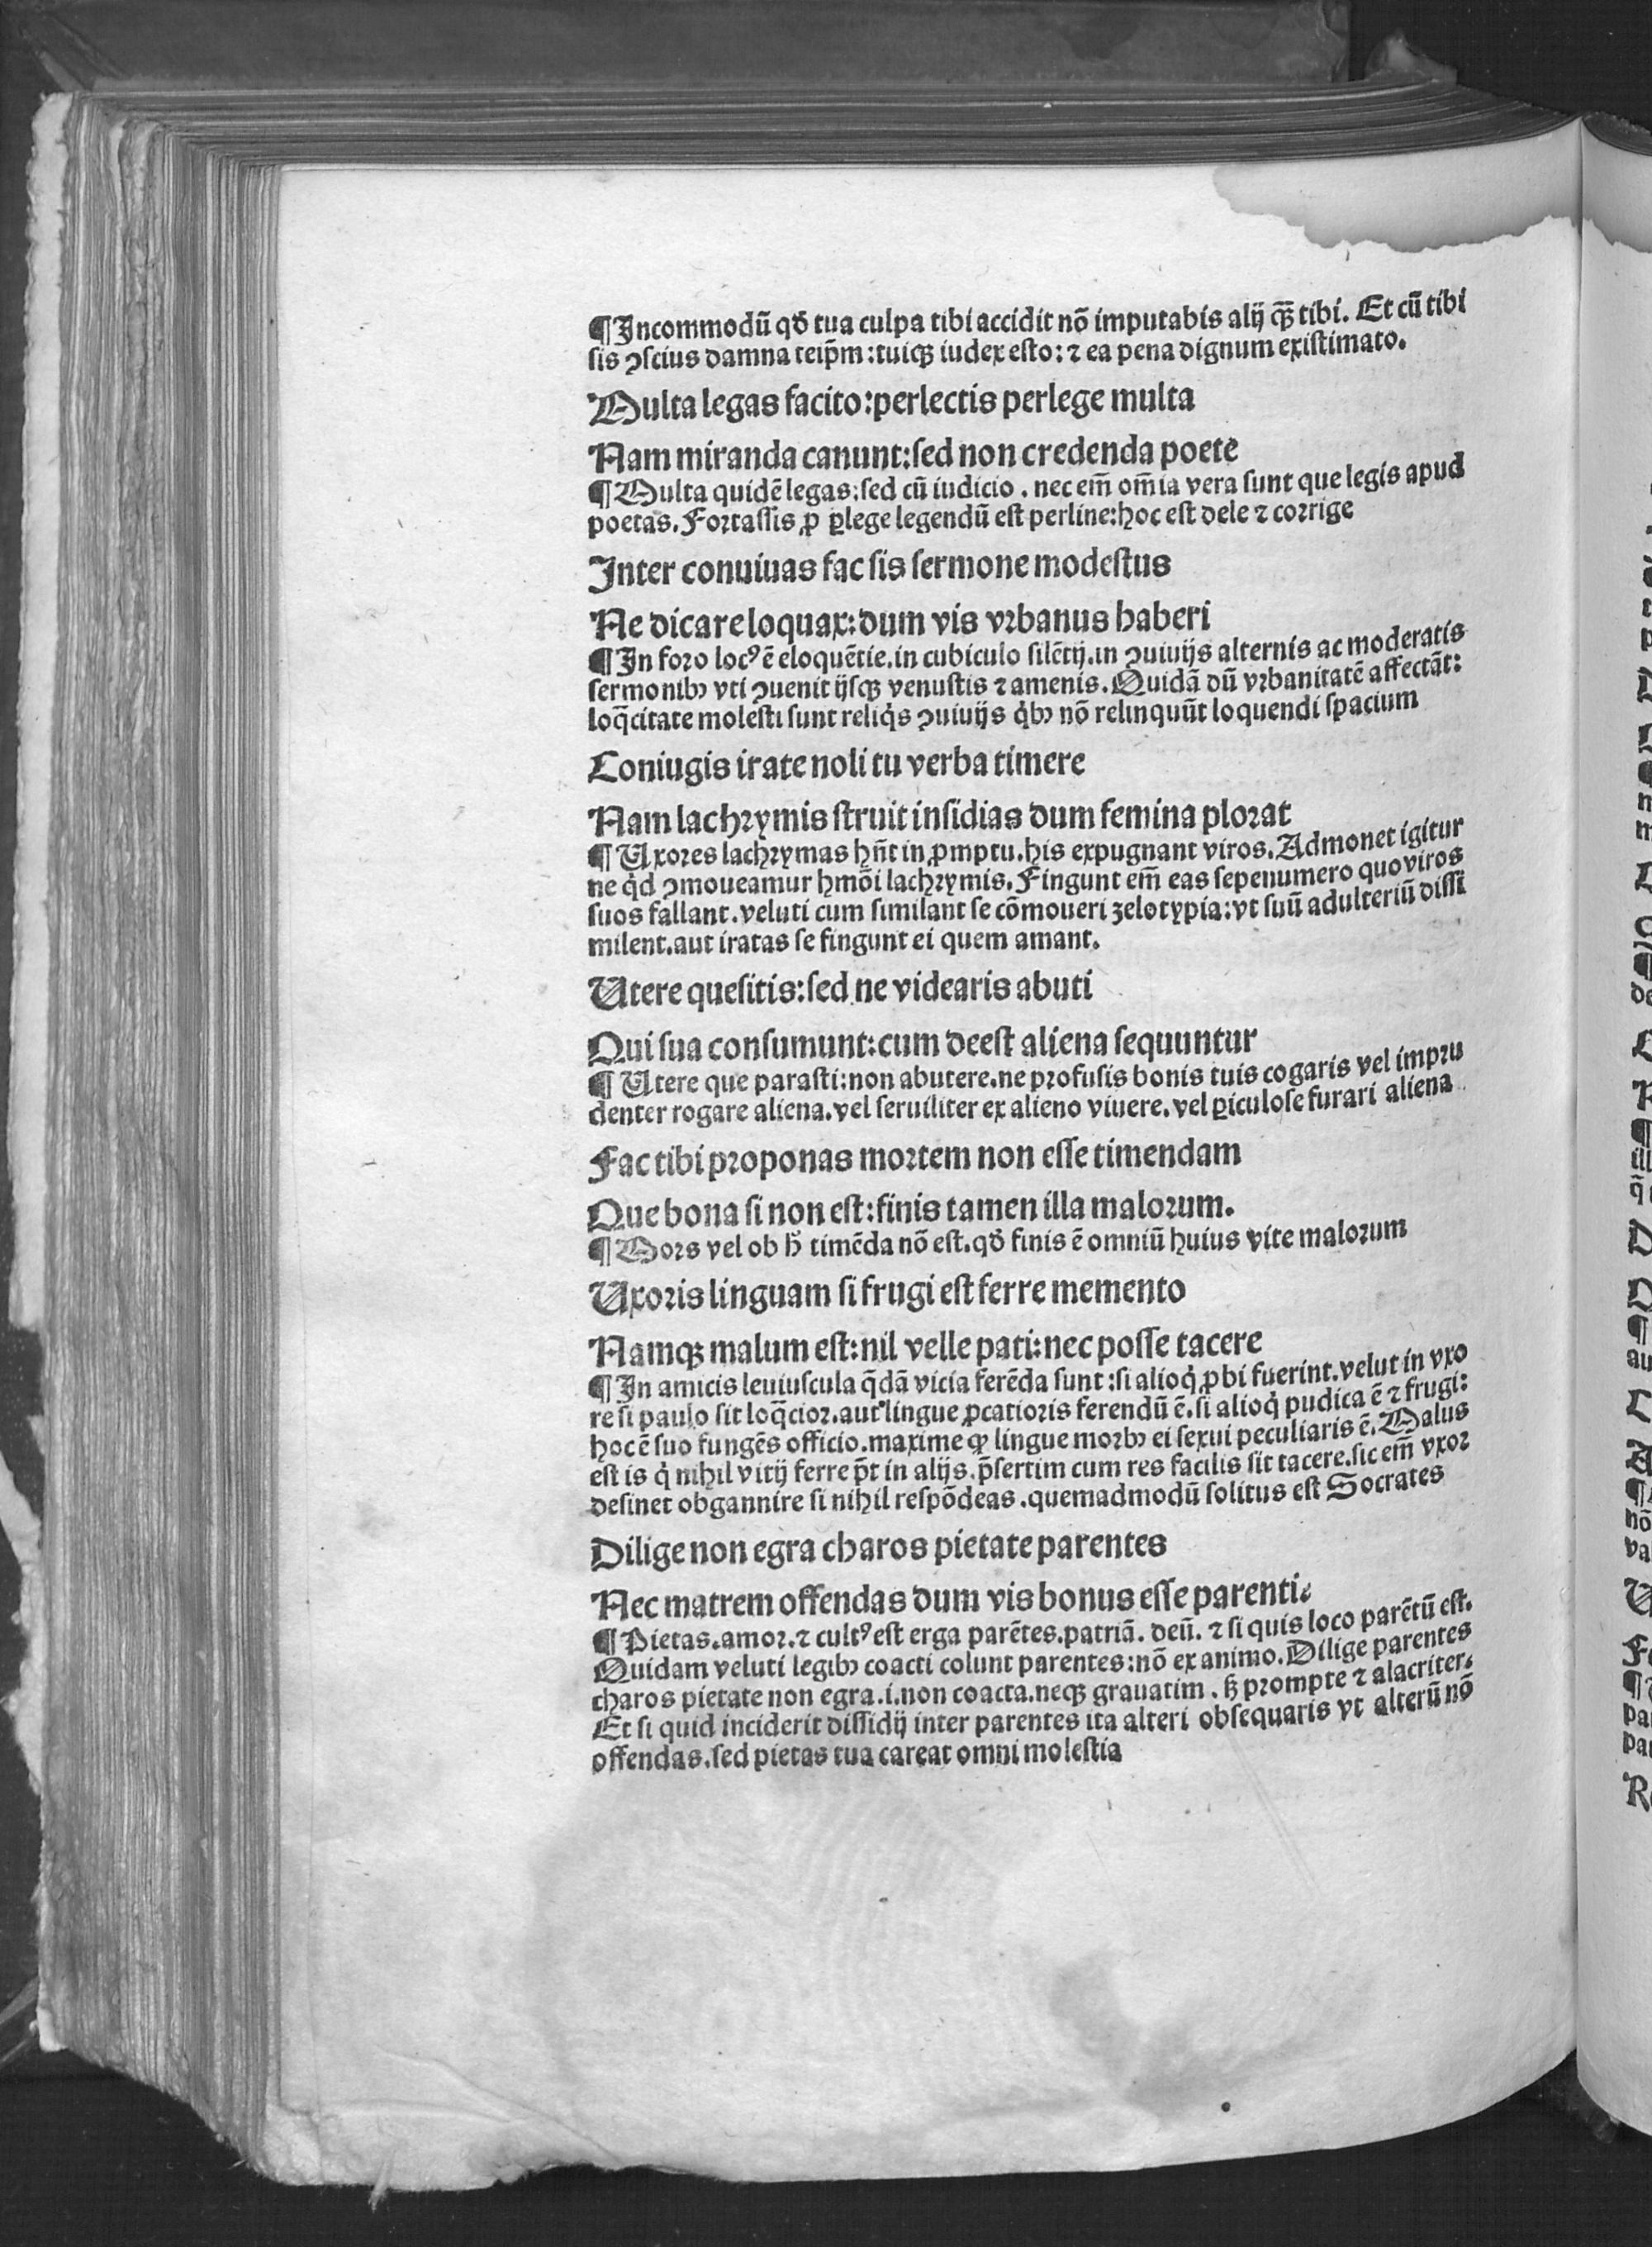 ¶Incommodū qď tua culpa tibi accidit nō imputabis alij q̄ꝫ tibi. Et cū tibi
sis ꝯscius damna teip̄m:tuiqꝫ iudex esto:⁊ ea pena dignum existimato.
Multa legas facito:perlectis perlege multa
Nam miranda canunt:sed non credenda poete
¶Multa quidē legas:sed cū iudicio. nec em̄ om̄ia vera sunt que legis apud
poetas. Fortassis ꝓ ꝑlege legendū est perline:hoc est dele ⁊ corrige
Inter conuiuas fac sis sermone modestus
Ne dicare loquax:dum vis vrbanus haberi
¶In foro locꝰ ē eloquētie.in cubiculo silētij.in ꝯuiuijs alternis ac moderatis
sermonibꝫ vti ꝯuenit ijsqꝫ venustis ⁊ amenis. Quidā dū vrbanitatē affectāt:
loq̄citate molesti sunt reliqͥs ꝯuiuijs qͥbꝫ nō relinquūt loquendi spacium
Coniugis irate noli tu verba timere
Nam lachrymis struit insidias dum femina plorat
¶Uxores lachrymas hn̄t in ꝓmptu.his expugnant viros. Admonet igitur
ne qͥd ꝯmoueamur hmōi lachrymis. Fingunt em̄ eas sepenumero quo viros
suos fallant.veluti cum similant se cōmoueri zelotypia:vt suū adulteriū dissi
milent.aut iratas se fingunt ei quem amant.
Utere quesitis:sed ne videaris abuti
Qui sua consumunt:cum deest aliena sequuntur
¶Utere que parasti:non abutere.ne profusis bonis tuis cogaris vel impru
denter rogare aliena.vel seruiliter ex alieno viuere.vel ꝑiculose furari aliena
Fac tibi proponas mortem non esse timendam
Que bona si non est:finis tamen illa malorum.
¶Mors vel ob ħ timēda nō est.qď finis ē omniū huius vite malorum
Uxoris linguam si frugi est ferre memento
Namqꝫ malum est:nil velle pati:nec posse tacere
¶In amicis leuiuscula q̄dā vicia ferēda sunt:si alioqͥ ꝓbi fuerint.velut in vxo
re si paulo sit loq̄cior.aut lingue ꝓcatioris ferendū ē.si alioqͥ pudica ē ⁊ frugi:
hoc ē suo fungēs officio.maxime qꝫ lingue morbꝫ ei sexui peculiaris ē. Malus
est is qͥ nihil vitij ferre p̄t in alijs.p̄sertim cum res facilis sit tacere.sic em̄ vxor
desinet obgannire si nihil respōdeas.quemadmodū solitus est Socrates
Dilige non egra charos pietate parentes
Nec matrem offendas dum vis bonus esse parenti.
¶Pietas.amor.⁊ cultꝰ est erga parētes.patriā. deū. ⁊ si quis loco parētū est.
Quidam veluti legibꝫ coacti colunt parentes:nō ex animo. Dilige parentes
charos pietate non egra.i.non coacta.neqꝫ grauatim. sꝫ prompte ⁊ alacriter.
Et si quid inciderit dissidij inter parentes ita alteri obsequaris vt alterū nō
offendas.sed pietas tua careat omni molestia